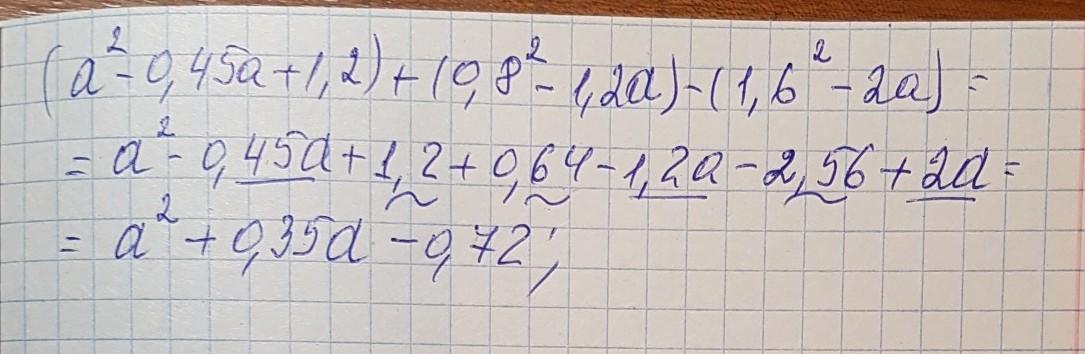 (a² - 0,45a + 1,2) + (0,8² - 1,2a) - (1,6² - 2a) =
= a² - 0,45a + 1,2 + 0,64 - 1,2a - 2,56 + 2a =
= a² + 0,35a - 0,72;